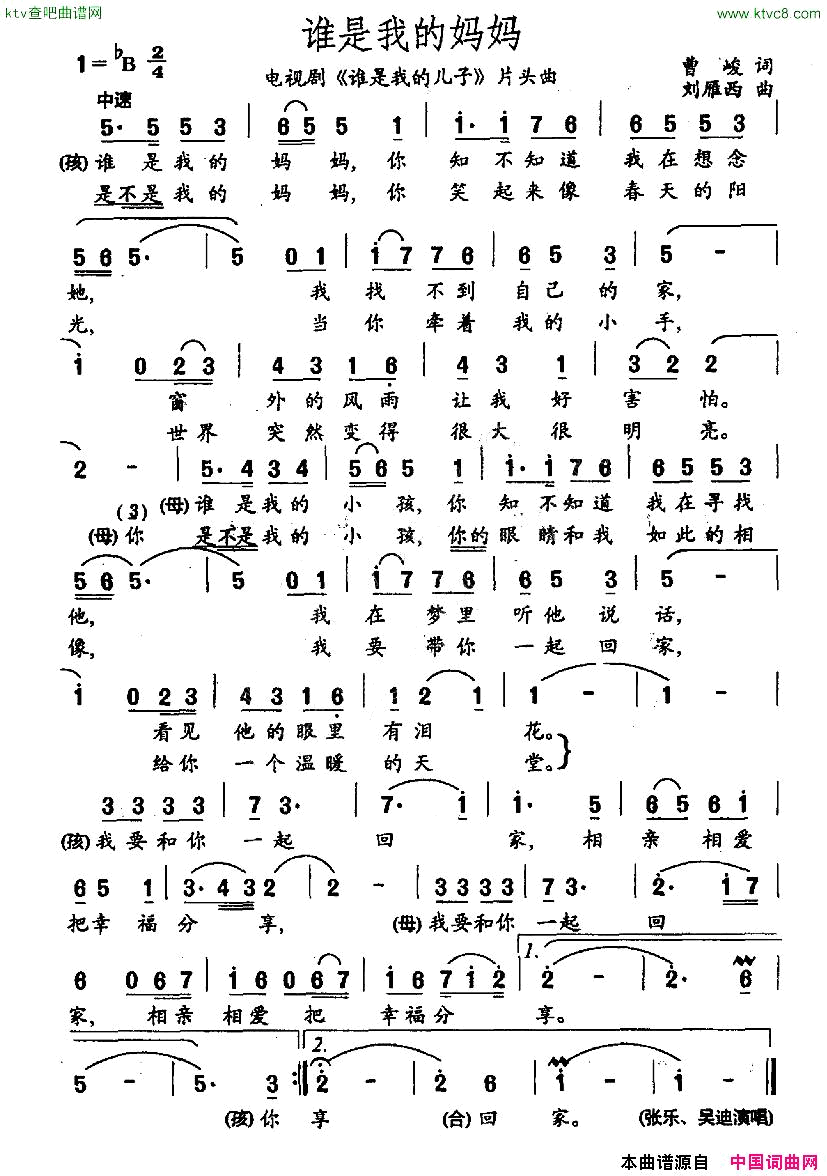 ktv查吧曲谱网
www.ktvc8.com
谁是我的妈妈
1=♭B 2/4
电视剧《谁是我的儿子》片头曲
曹峻 词
刘雁西 曲
中速
5· 5 5 3 | 6 5 5 1 | i· i 7 6 | 6 5 5 3 |
(孩)谁 是 我 的 妈 妈, 你 知 不 知 道 我 在 想 念
是不是 我 的 妈 妈, 你 笑 起 来 像 春 天 的 阳
5 6 5· | 5 0 1 | i 7 7 6 | 6 5 3 | 5 - |
她, 我 找 不 到 自 己 的 家,
光, 当 你 牵 着 我 的 小 手,
i 0 2 3 | 4 3 1 6 | 4 3 1 | 3 2 2 |
窗 外 的 风 雨 让 我 好 害 怕。
世 界 突 然 变 得 很 大 很 明 亮。
2 - | 5· 4 3 4 | 5 6 5 1 | i· i 7 6 | 6 5 5 3 |
(3) (母)谁 是 我 的 小 孩, 你 知 不 知 道 我 在 寻 找
(母)你 是不是 我 的 小 孩, 你的 眼 睛 和 我 如 此 的 相
5 6 5· | 5 0 1 | i 7 7 6 | 6 5 3 | 5 - |
他, 我 在 梦 里 听 他 说 话,
像, 我 要 带 你 一 起 回 家,
i 0 2 3 | 4 3 1 6 | 1 2 1 | 1 - | 1 - |
看 见 他 的 眼 里 有 泪 花。
给 你 一 个 温 暖 的 天 堂。
3 3 3 3 | 7 3· | 7· i | i· 5 | 6 5 6 i |
(孩)我 要 和 你 一 起 回 家, 相 亲 相 爱
6 5 1 | 3· 4 3 2 | 2 - | 3 3 3 3 | 7 3· | 2· i 7 |
把 幸 福 分 享, (母)我 要 和 你 一 起 回
6 0 6 7 | i 6 0 6 7 | i 6 7 i 2 | 1. 2 - | 2· 6 |
家, 相 亲 相 爱 把 幸 福 分 享。
5 - | 5· 3 :| 2. 2 - | 2 6 | i - | i - |
(孩)你 享 (合)回 家。 (张乐、吴迪演唱)
本曲谱源自 中国词曲网